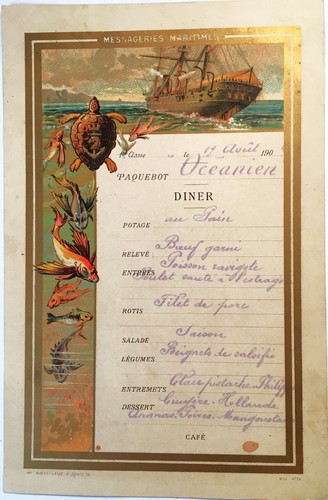 MESSAGERIES MARITIMES
1e Classe le 19 Août 190
PAQUEBOT Océanien
DINER
POTAGE au Pain
RELEVÉ Bœuf garni
ENTRÉES Poisson ravigote
Poulet sauté à l'estragon
ROTIS Filet de porc
SALADE Saison
LÉGUMES Beignets de salsifis
ENTREMETS Glace pistache. Philipp
DESSERT Gruyère. Hollande
Ananas. Poires. Mangoustans
CAFÉ